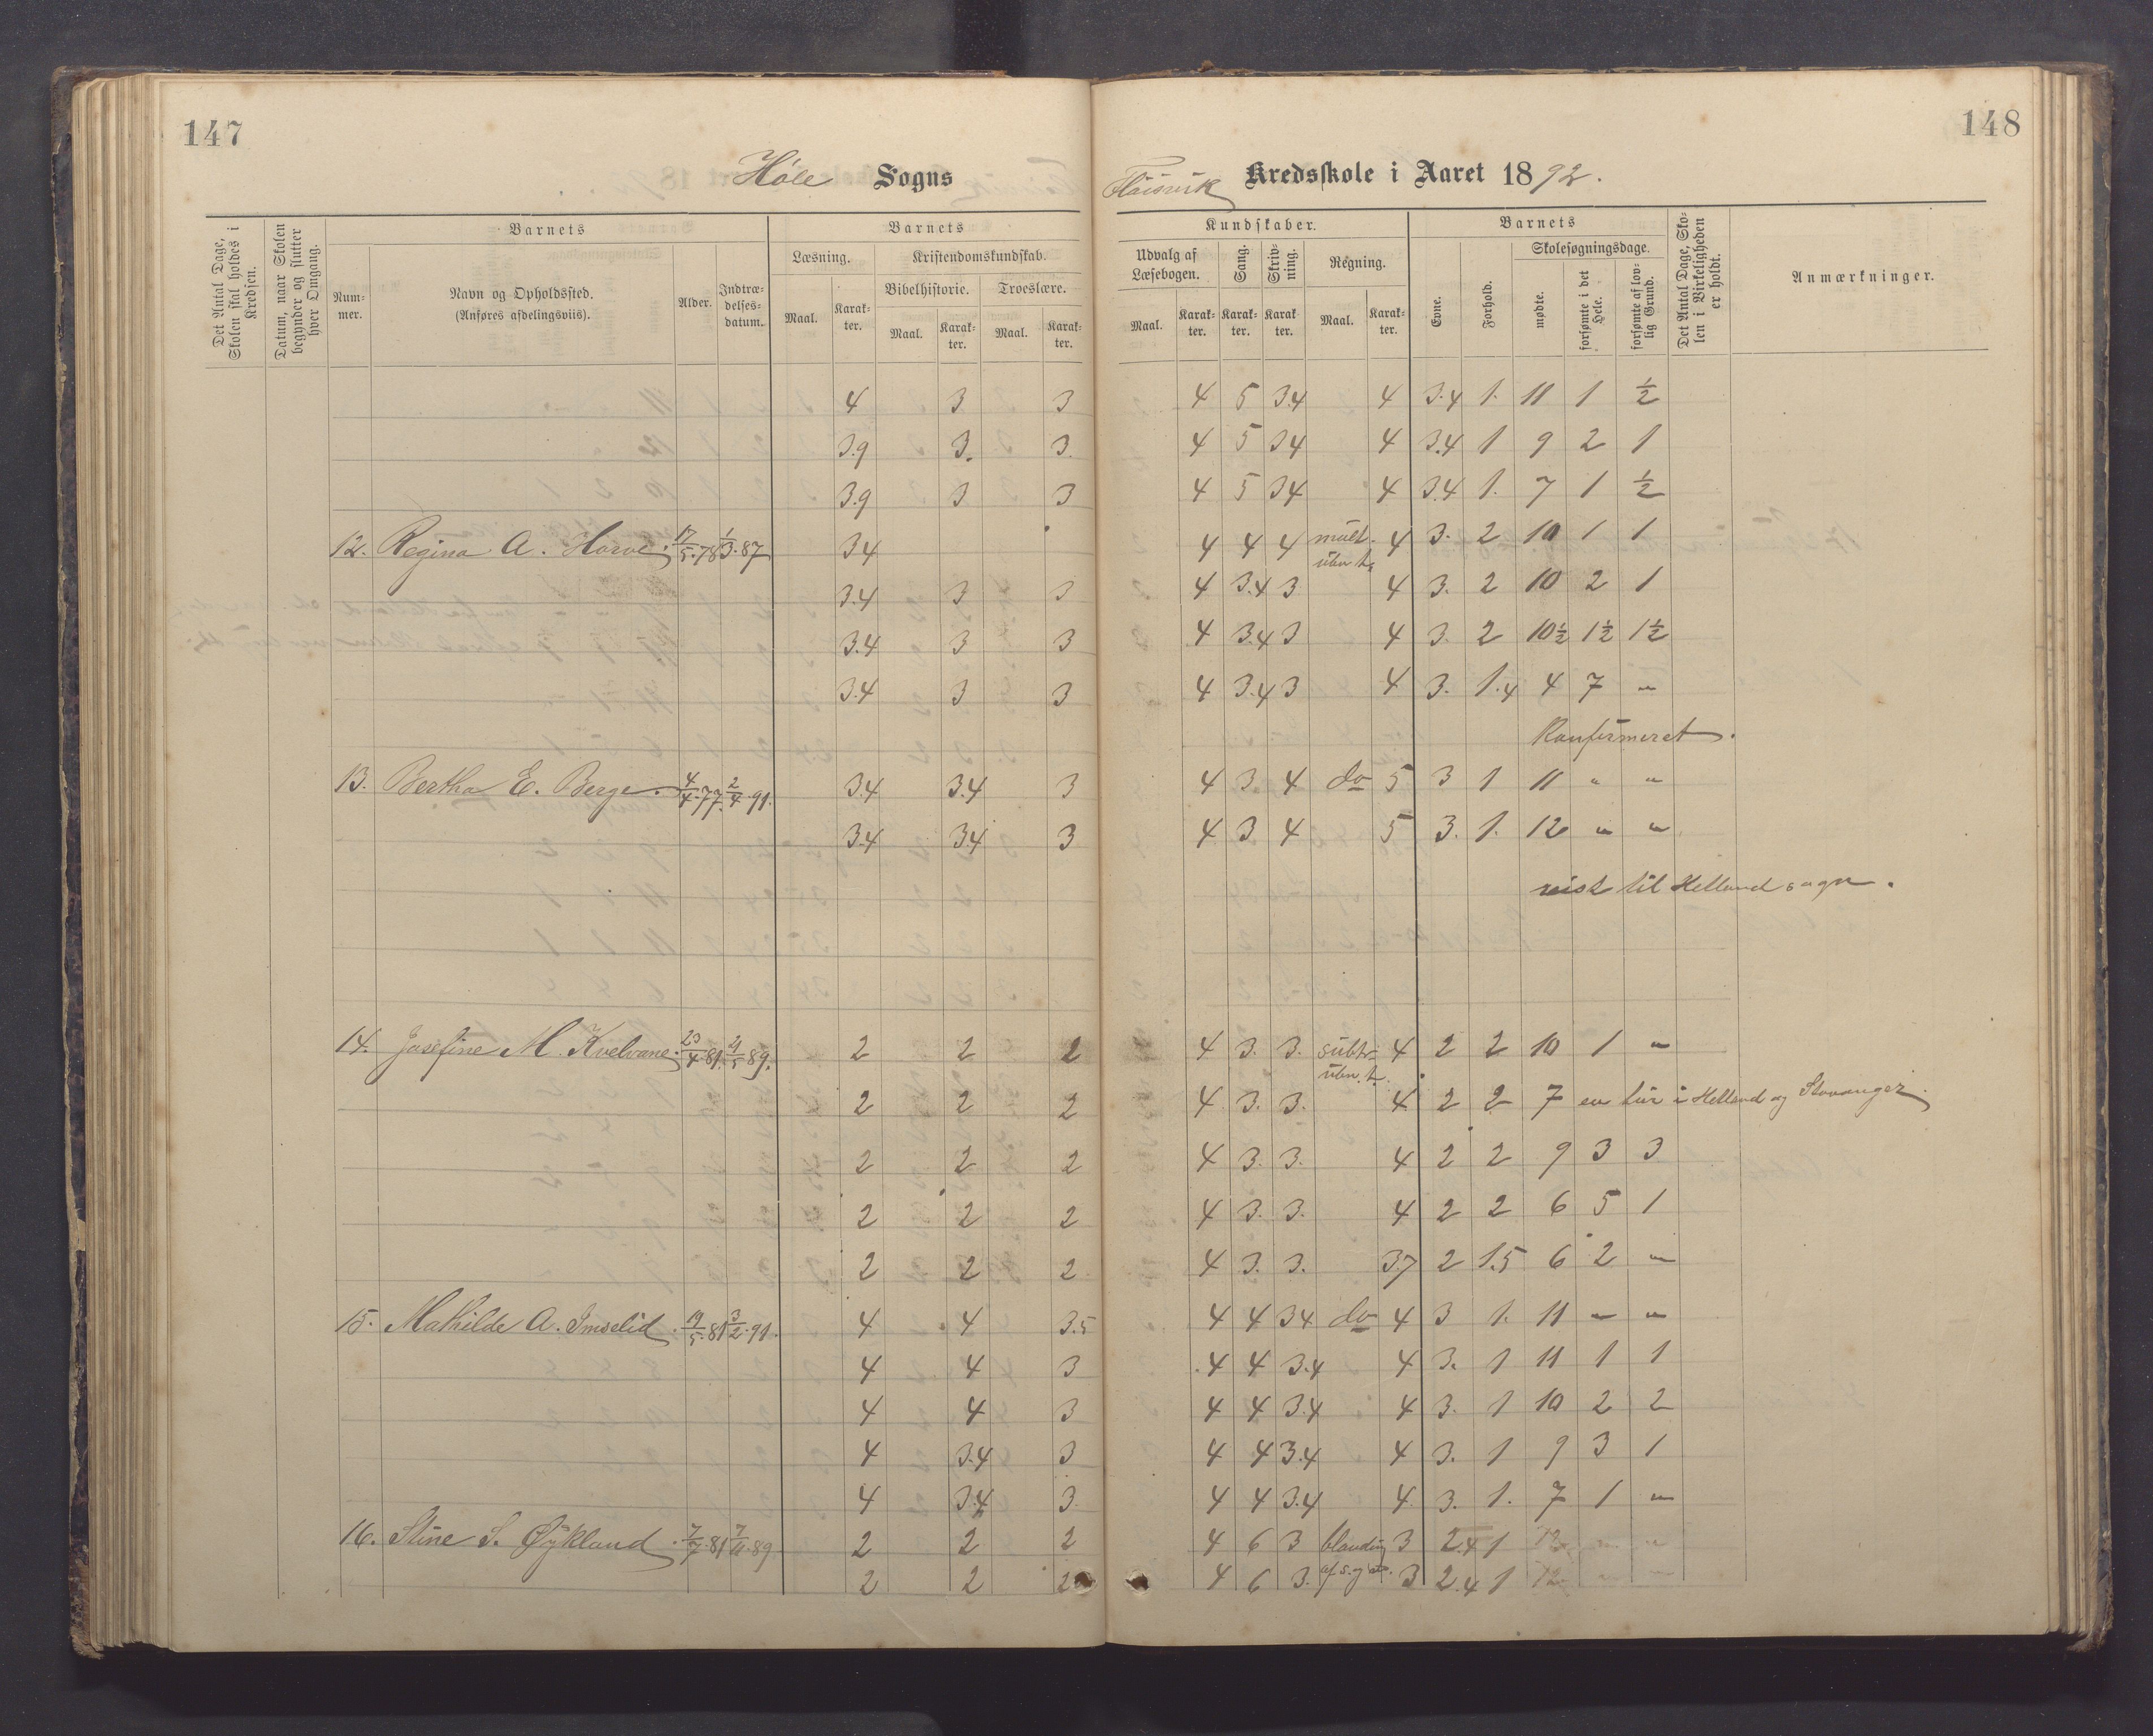 147
148
Høle Sogns
Kredsskole i Aaret 1892.
Det Antal Dage, Skolen skal holdes i Kredsen.
Datum, naar Skolen begynder og slutter hver Omgang.
Barnets
Num-mer.
Navn og Opholdssted.
(Anføres afdelingsviis).
Alder.
Indtræ-delses-datum.
Barnets
Læsning.
Kristendomskundskab.
Bibelhistorie. Troeslære.
Maal. Karak-ter. Maal. Karak-ter. Maal. Karak-ter.
Kundskaber.
Udvalg af Læsebogen. Sang. Skriv-ning. Regning.
Maal. Karak-ter. Karak-ter. Karak-ter. Maal. Karak-ter.
Barnets
Evne. Forhold.
Skolesøgningsdage.
mødte. forsømte i det Hele. forsømte af lov-lig Grund.
Det Antal Dage, Sko-len i Virkeligheden er holdt.
Anmærkninger.
4 3 3 4 5 3.4 4 3.4 1. 11 1 ½
3.9 3. 3. 4 5 34 4 3.4 1 9 2 1
3.9 3 3 4 5 34 4 3.4 1. 7 1 ½
12. Regina A. Horve. 17/5.78 1/3.87 34 4 4 4 mult. 4 3. 2 10 1 1
uben t.
3.4 3 3 4 3.4 3 4 3. 2 10 2 1
3.4 3 3 4 3.4 3 4 3. 2 10½ 1½ 1½
3.4 3 3 4 3.4 3 4 3. 1.4 4 7 "
Konfirmeret.
13. Bertha E. Berge. 4/4.77. 2/4.91. 3.4 3.4 3 4 3 4 do 5 3 1 11 " "
3.4 3.4 3 4 3 4 5 3. 1. 12 " "
reist til Helland sogn.
14. Josefine M. Kvelvane. 23/4.81. 21/5.89. 2 2 2 4 3. 3. subtr. 4 2 2 10 1 "
uben t.
2 2 2 4 3. 3. 4 2 2 7 en tur i Helland og Stavanger.
2 2 2 4 3. 3. 4 2 2 9 3 3
2 2 2 4 3. 3. 4 2 2 6 5 1
2 2 2 4 3. 3. 3.7 2 1.5 6 2 "
15. Mathilde A. Imselid. 19/5.81 3/2.91. 4 4 3.5 4 4 34 do 4 3 1. 11 " "
4 4 3 4 4 3.4 4 3. 1 11 1 1
4 4 3 4 4 3.4 4 3. 1 10 2 2
4 3.4 3 4 4 3.4 4 3. 1 9 3 1
4 3.4 3. 4 4 3.4 4. 3. 1. 7 1 "
16. Stine S. Øykland. 7/7.81 7/11.89 2 2 2 4 6 3 blanding 3 2.4 1 12 " "
2 2 2 4 6 3. af s. og 3 2.4 1 12 " "